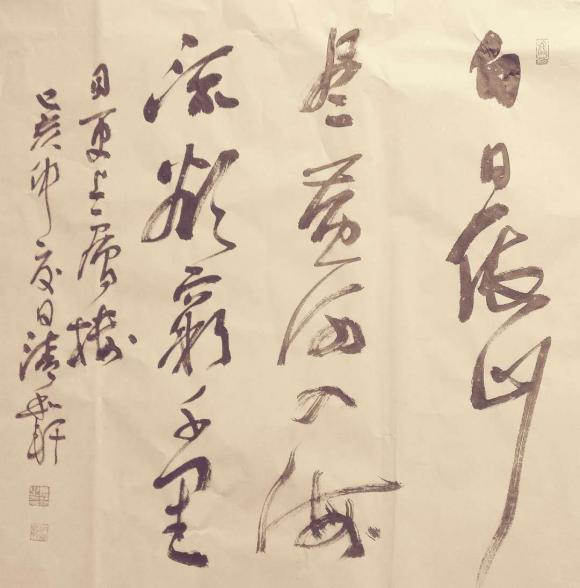 白日依山
尽黄河入海
流欲穷千里
目更上一层楼
己亥仲夏日清和轩